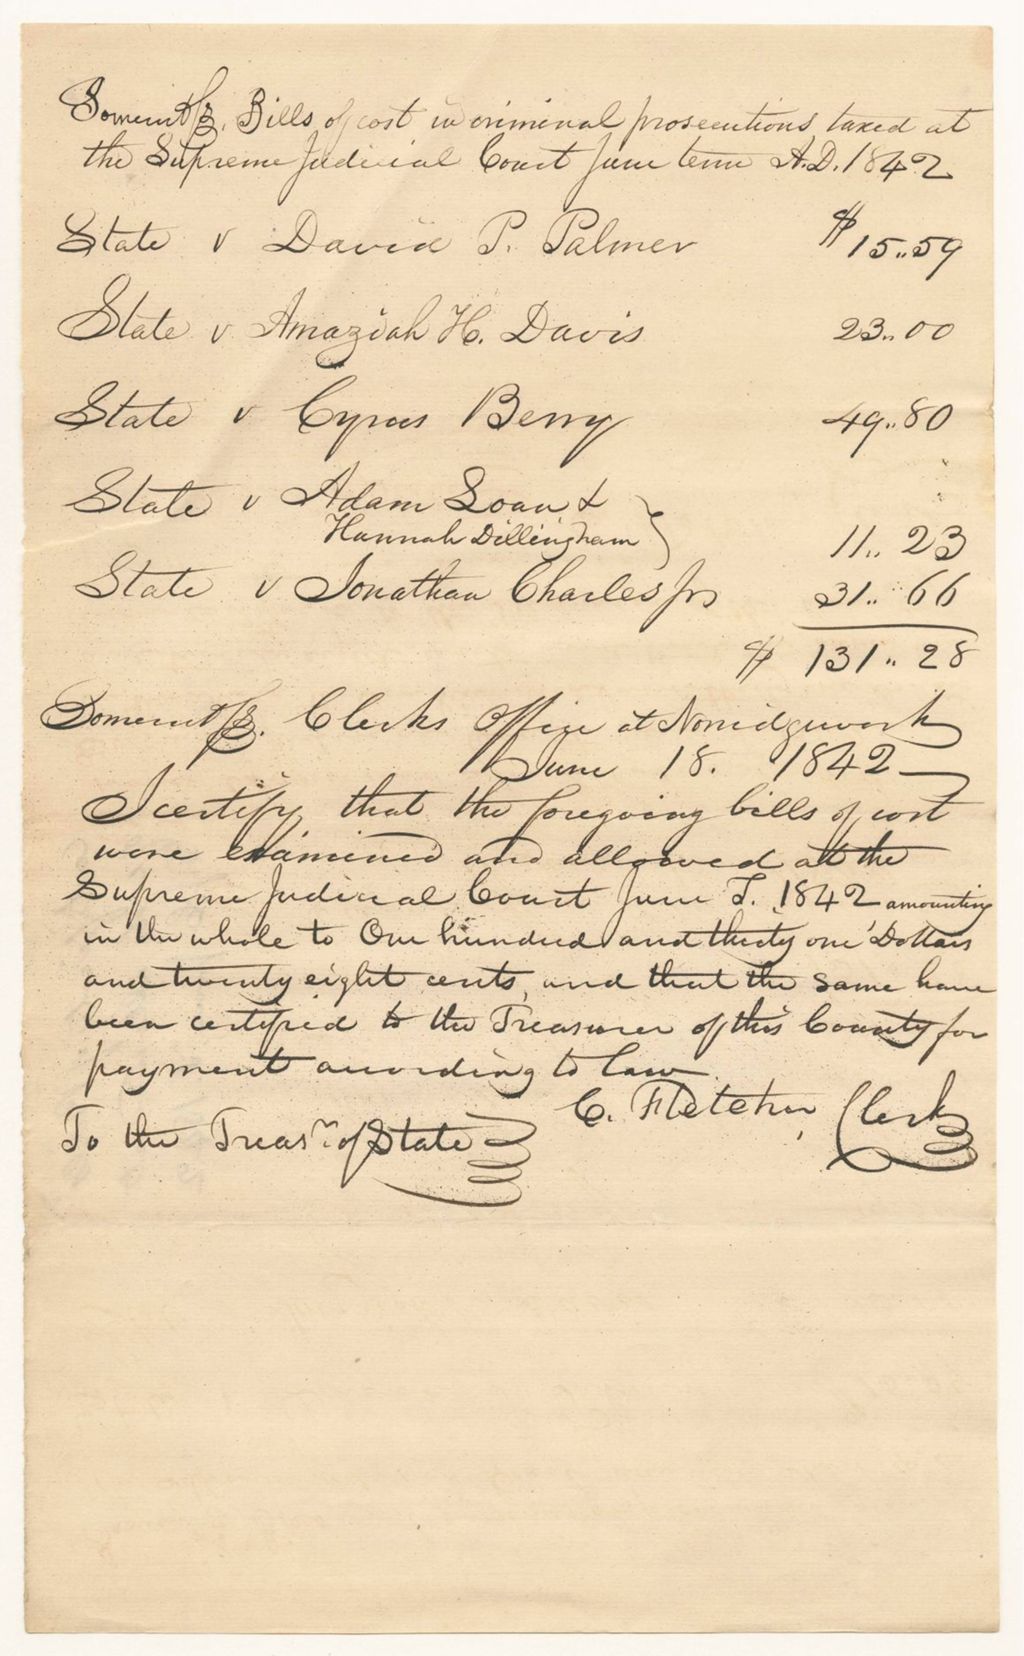 Somerset ss. Bills of cost in criminal prosecutions taxed at
the Supreme Judicial Court June term A.D. 1842
State v David P. Palmer $ 15..59
State v Amaziah H. Davis 23..00
State v Cyrus Berry 49..80
State v Adam Soan &
Hannah Dillingham } 11.. 23
State v Jonathan Charles Jr 31.. 66
$ 131.. 28
Somerset ss. Clerks Office at Norridgewock
June 18. 1842
I certify that the foregoing bills of cost
were examined and allowed at the
Supreme Judicial Court June T. 1842 amounting
in the whole to One hundred and thirty one Dollars
and twenty eight cents, and that the same have
been certified to the Treasurer of this County for
payment according to law.
C. Fletcher, Clerk
To the Treasr. of State